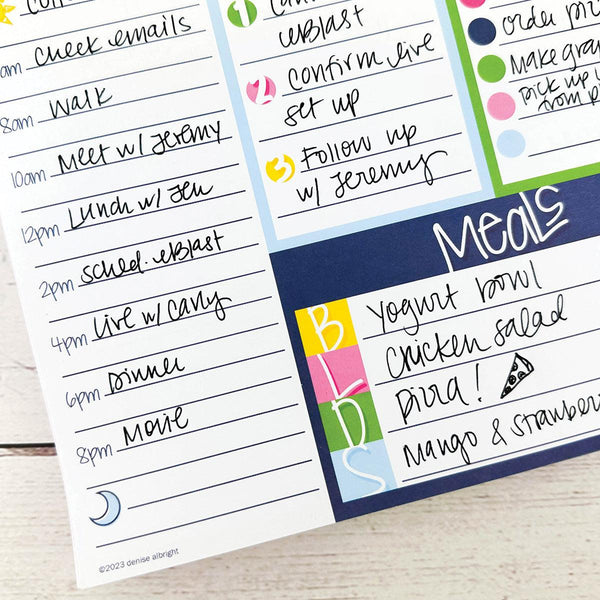 am check emails
8am Walk
10am Meet w/ Jeremy
12pm Lunch w/ Jen
2pm sched. eBlast
4pm Live w/ Carly
6pm Dinner
8pm Movie
©2023 denise albright
1
eBlast
2 Confirm live
set up
3 Follow up
w/ Jeremy
order
Make
pick up
from
Meals
B Yogurt bowl
L chicken salad
D pizza!
S Mango &